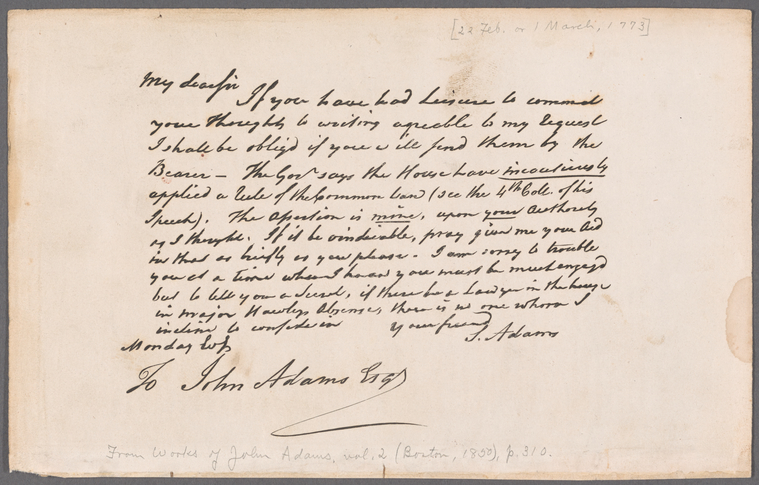 [22 Feb. or 1 March, 1773]
My dear sir
If you have had leisure to commit
your thoughts to writing agreable to my request
I shall be obligd if you will send them by the
Bearer — The Govr says the House have incautiously
applied a Rule of the Common Law (see the 4th Coll. of his
Speech). The assertion is mine, upon your Authority
as I thought. If it be vindicable, pray give me your Aid
in that as briefly as you please. I am sorry to trouble
you at a time when I know you must be much engagd
but to tell you a Secret, if there be a Lawyer in the house
in Major Hawleys Absence, there is no one whom I
incline to confide in
your friend
S. Adams
Monday
To John Adams Esqr
From Works of John Adams, vol. 2 (Boston, 1850), p. 310.